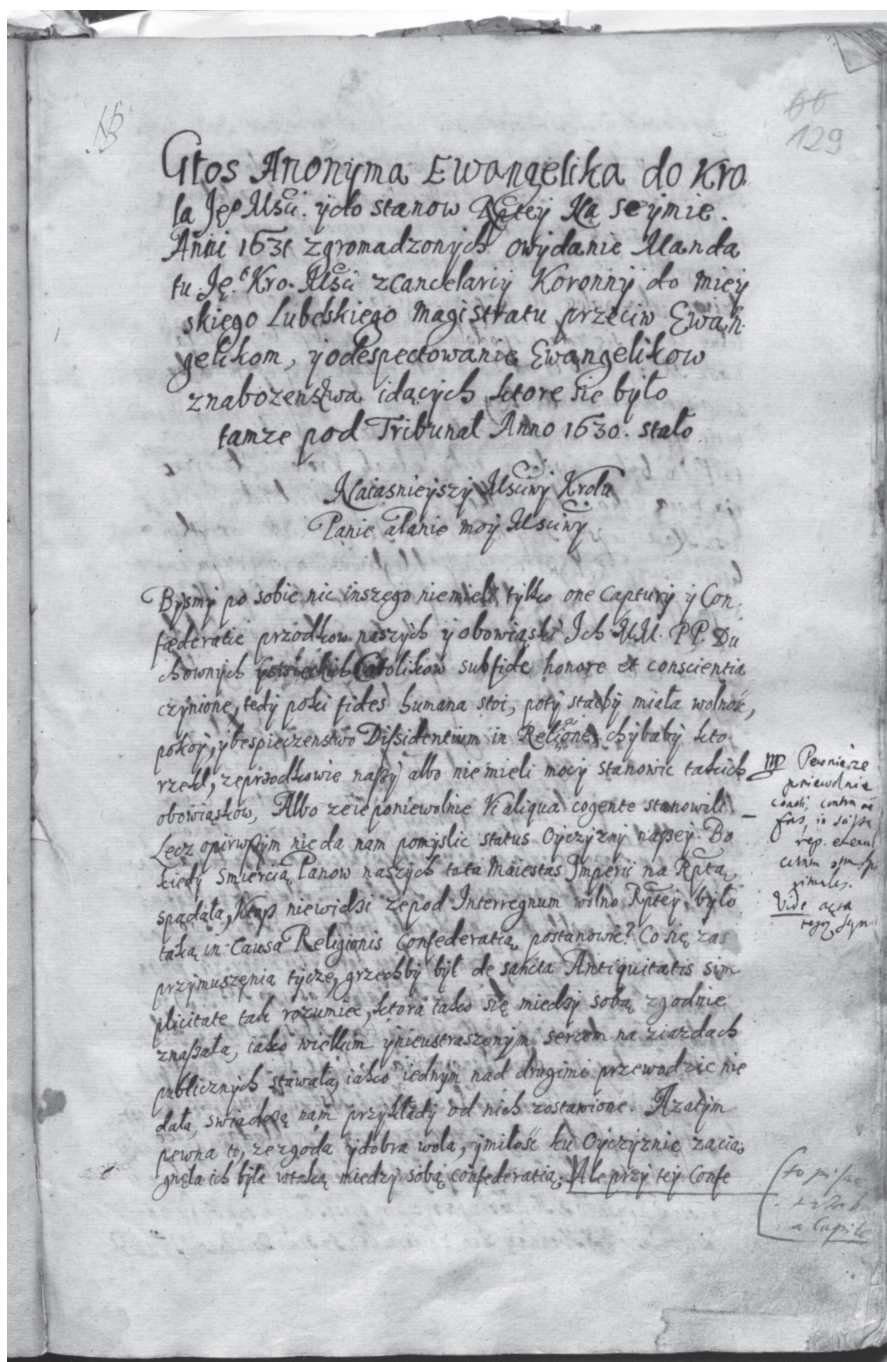 129
Głos Anonyma Ewangelika do Kro
la Je° Mści. ydo stanow Rptey Na seymie.
Anni 1631 zgromadzonych owydanie Manda
tu Je° Kro. Mści zcancelariy Koronny do miey
skiego Lubelskiego magistratu przeciw Ewan
gelikom, yodespectowanie Ewangelikow
znabozenstwa idących ktore się było
tamze pod Tribunal Anno 1630. stało
Naiasnieyszy Msciwy Krolu
Panie a Panie moy Msciwy
Bysmy po sobie nic inszego niemieli tylko one Captury y Con
fæderatie przodkow naszych y obowiąski Ich MM. PP. Du
chownych Catolikow sub fide honore et conscientia
czynione, tedy poki fides humana stoi, poty stacby miała wolnosc,
pokoy, ybespieczenstwo Dissidentium in Religione, chybaby kto
rzekł, zeprzodkowie naszy albo niemieli mocy stanowic takich
obowiąskow, Albo zeie poniewolnie Vi aliqua cogente stanowili
Lecz opirwszym nieda nam pomyslic status Oyczyzny naszey. Bo
kiedy smiercią Panow naszych tota Maiestas Imperii na Rptą
spadała, Ktosz niewidzi zepod Interregnum wolno Rptey było
taką in causa Religionis Confederatią postanowic? Co się zas
przymuszenia tycze, grzechby był de sancta Antiquitatis sim
plicitate tak rozumiec, ktora iako się miedzy sobą zgodnie
znaszała, iako wielkim ynieustraszonym sercem na ziazdach
publicznych stawała, iako iednym nad drugimi przewodzic nie
dała, swiadczą nam przykłady od nich zostawione. Azatym
pewna to, ze zgoda ydobra wola, ymiłosc ku Oyczyznie zacią
gnęła ich była wtaką miedzy sobą confederatią. Ale przy tey Confe
poniewolnie
contra
rep.
Vide acta